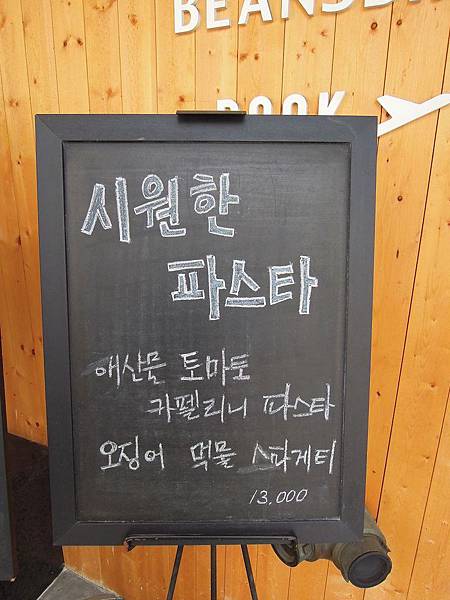 BEANSBI
BOOK
시원한
파스타
해산물 토마토
카펠리니 파스타
오징어 먹물 스파게티
13,000